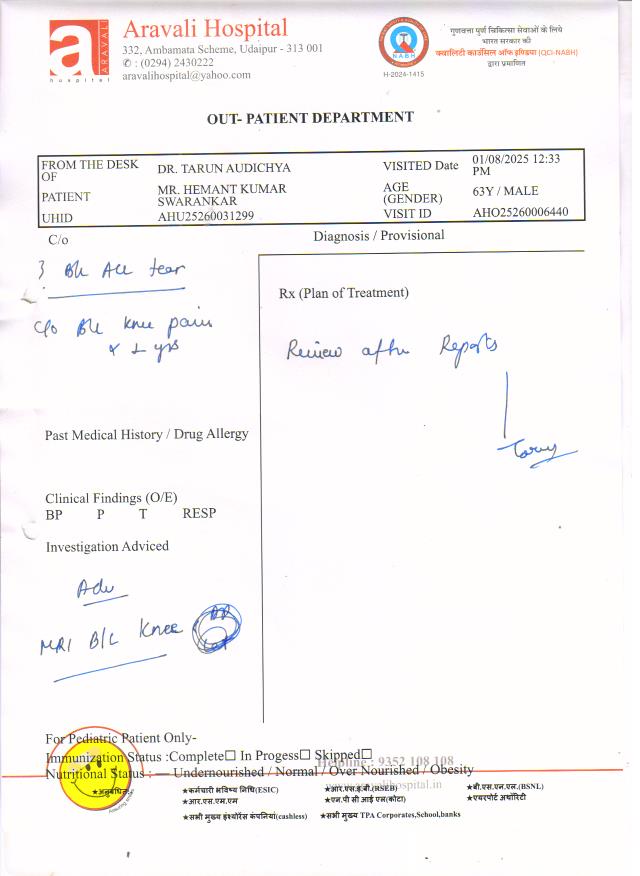 Aravali Hospital
332, Ambamata Scheme, Udaipur - 313 001
✆ : (0294) 2430222
aravalihospital@yahoo.com
a
ARAVALI
hospital
NABH
H-2024-1415
गुणवत्ता पूर्ण चिकित्सा सेवाओं के लिये
भारत सरकार की
क्वालिटी काउंसिल ऑफ इण्डिया (QCI-NABH)
द्वारा प्रमाणित
OUT- PATIENT DEPARTMENT
FROM THE DESK OF DR. TARUN AUDICHYA VISITED Date 01/08/2025 12:33 PM
PATIENT MR. HEMANT KUMAR SWARANKAR AGE (GENDER) 63Y / MALE
UHID AHU25260031299 VISIT ID AHO25260006440
C/o Diagnosis / Provisional
B/L ACL tear
C/o B/L knee pain
yrs
Rx (Plan of Treatment)
Review after Reports
Past Medical History / Drug Allergy
Clinical Findings (O/E)
BP P T RESP
Investigation Adviced
Adv
MRI B/L Knee
For Pediatric Patient Only-
Immunization Status :Complete☐ In Progess☐ Skipped☐
Helpline : 9352 108 108
Nutritional Status : — Undernourished / Normal / Over Nourished / Obesity
★अनुबंधित
★कर्मचारी भविष्य निधि(ESIC) ★आर.एस.इ.बी.(RSEB) ★बी.एस.एन.एल.(BSNL)
★आर.एस.एम.एम ★एन.पी सी आई एल(कोटा) ★एयरपोर्ट अथॉरिटी
★सभी मुख्य इंश्योरेंस कंपनियां(cashless) ★सभी मुख्य TPA Corporates,School,banks